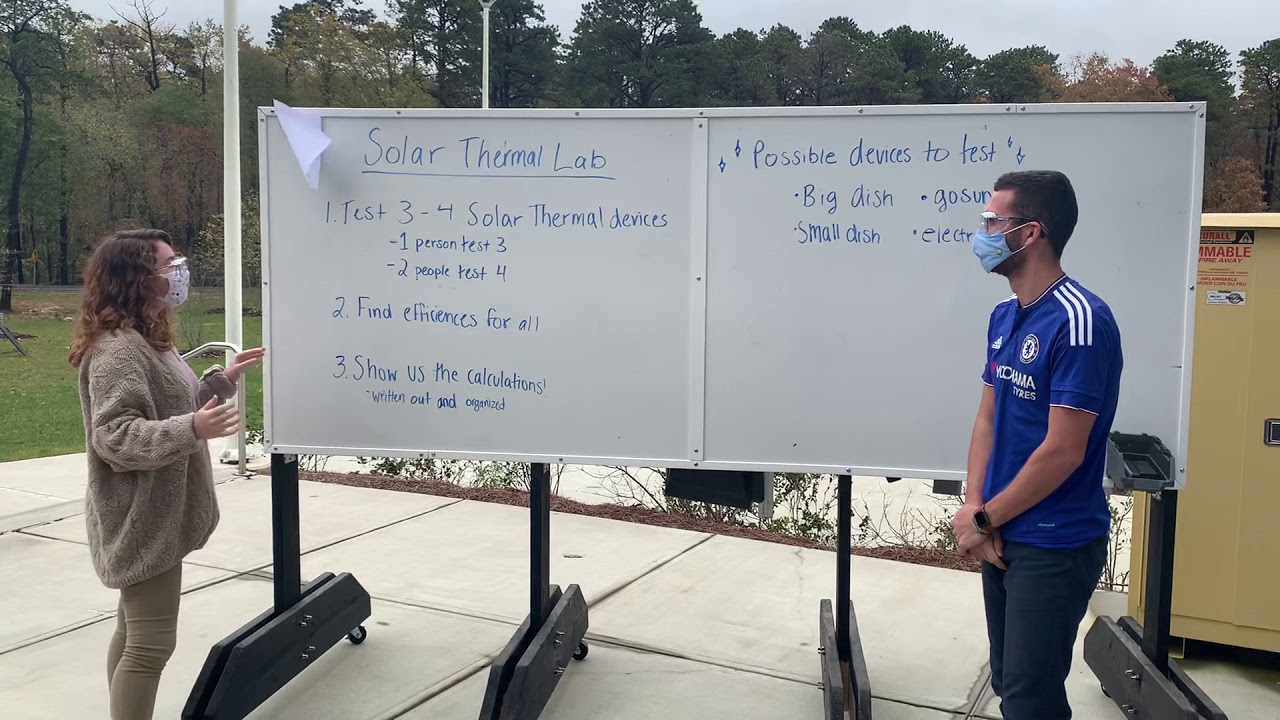 Solar Thermal Lab
1. Test 3-4 Solar Thermal devices
-1 person test 3
-2 people test 4
2. Find efficiences for all
3. Show us the calculations!
-written out and organized
Possible devices to test
·Big dish ·gosun
·Small dish ·electr
adidas
TYRES